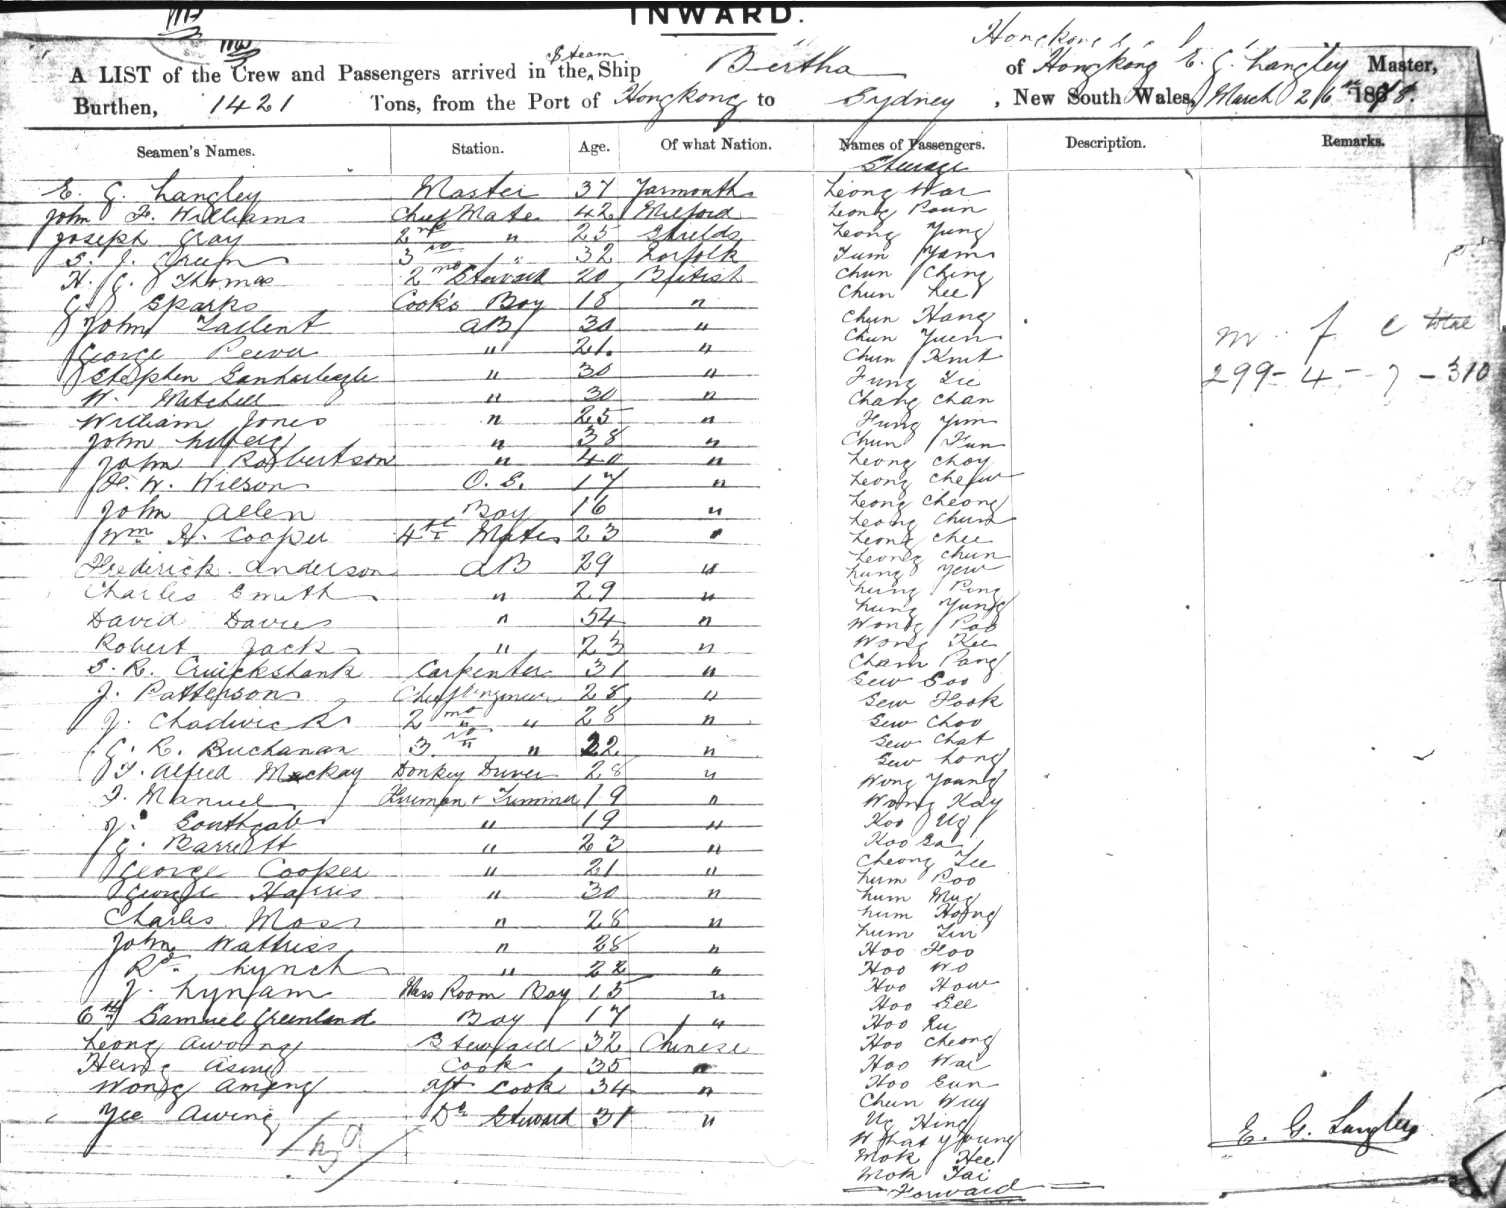 INWARD.
Hongkong
A LIST of the Crew and Passengers arrived in the Steam Ship Bertha of Hongkong E. G. Langley Master,
Burthen, 1421 Tons, from the Port of Hongkong to Sydney, New South Wales, March 26th 1878.
Seamen's Names. Station. Age. Of what Nation. Names of Passengers. Description. Remarks.
Steerage
E. G. Langley Master 37 Yarmouth Leong War
John F. Williams Chief Mate 42 Milford Leong
Joseph Gray 2nd " 25 Shields Leong Yung
S. J. Green 3rd " 32 Norfolk Yum Yam
H. G. Thomas 2nd Steward 20 British Chun Ching
G. Sparks Cook's Boy 18 " Chun Lee
John Tallent AB 30 " Chun Hang
m f c total
George 21 " Chun Yuen
Chun
Stephen 30 " Fung Lee
299 - 4 - 7 - 310
W. Mitchell " 30 " Chang Chan
William Jones " 25 " Fung Yim
John " 38 " Chun Fun
John Robertson " 40 " Leong Choy
W. Wilson O.S. 17 " Leong
Leong Cheong
John Allen Boy 16 " Leong Chun
Wm H. Cooper 4th Mate 23 " Leong Chee
Leong Chun
Frederick Anderson AB 29 " Lung Yew
Charles Smith " 29 " Lung Ping
Lung Yung
David Davies " 54 " Wong Poo
Robert Jack " 23 " Wong Kee
S. R. Cruickshank Carpenter 31 " Cham Pang
Sew Soo
J. Patterson Chief Engineer 28 " Sew Fook
J. Chadwick 2nd " 28 " Sew Choo
Sew Chat
G. R. Buchanan 3rd " 22 " Sew Long
T. Alfred Mackay Donkey Driver 28 " Wong Young
F. Manuel Fireman & Trimmer 19 " Wong Kay
J. Southgate " 19 " Koo Ug
G. Barrett " 23 " Koo Sa
Cheong Lee
George Cooper " 21 " Lum Poo
George Harris " 30 " Lum Mug
Charles Moss " 28 " Lum Hong
Lum Lin
John Wattriss " 28 " Hoo Foo
Rd. Lynch " 22 " Hoo Wo
J. Lynam Mess Room Boy 15 " Hoo How
Hoo See
Samuel Greenland Boy 17 " Hoo Lu
Leong Awoong Steward 32 Chinese Hoo Cheong
Heung Asing Cook 35 " Hoo Wai
Wong Ameng Aft Cook 34 " Hoo Sun
Chun Wuy
Yee Awing Do Steward 31 " Ug Hing
E. G. Langley
Young
Mok Hee
Mok Tai
Forward